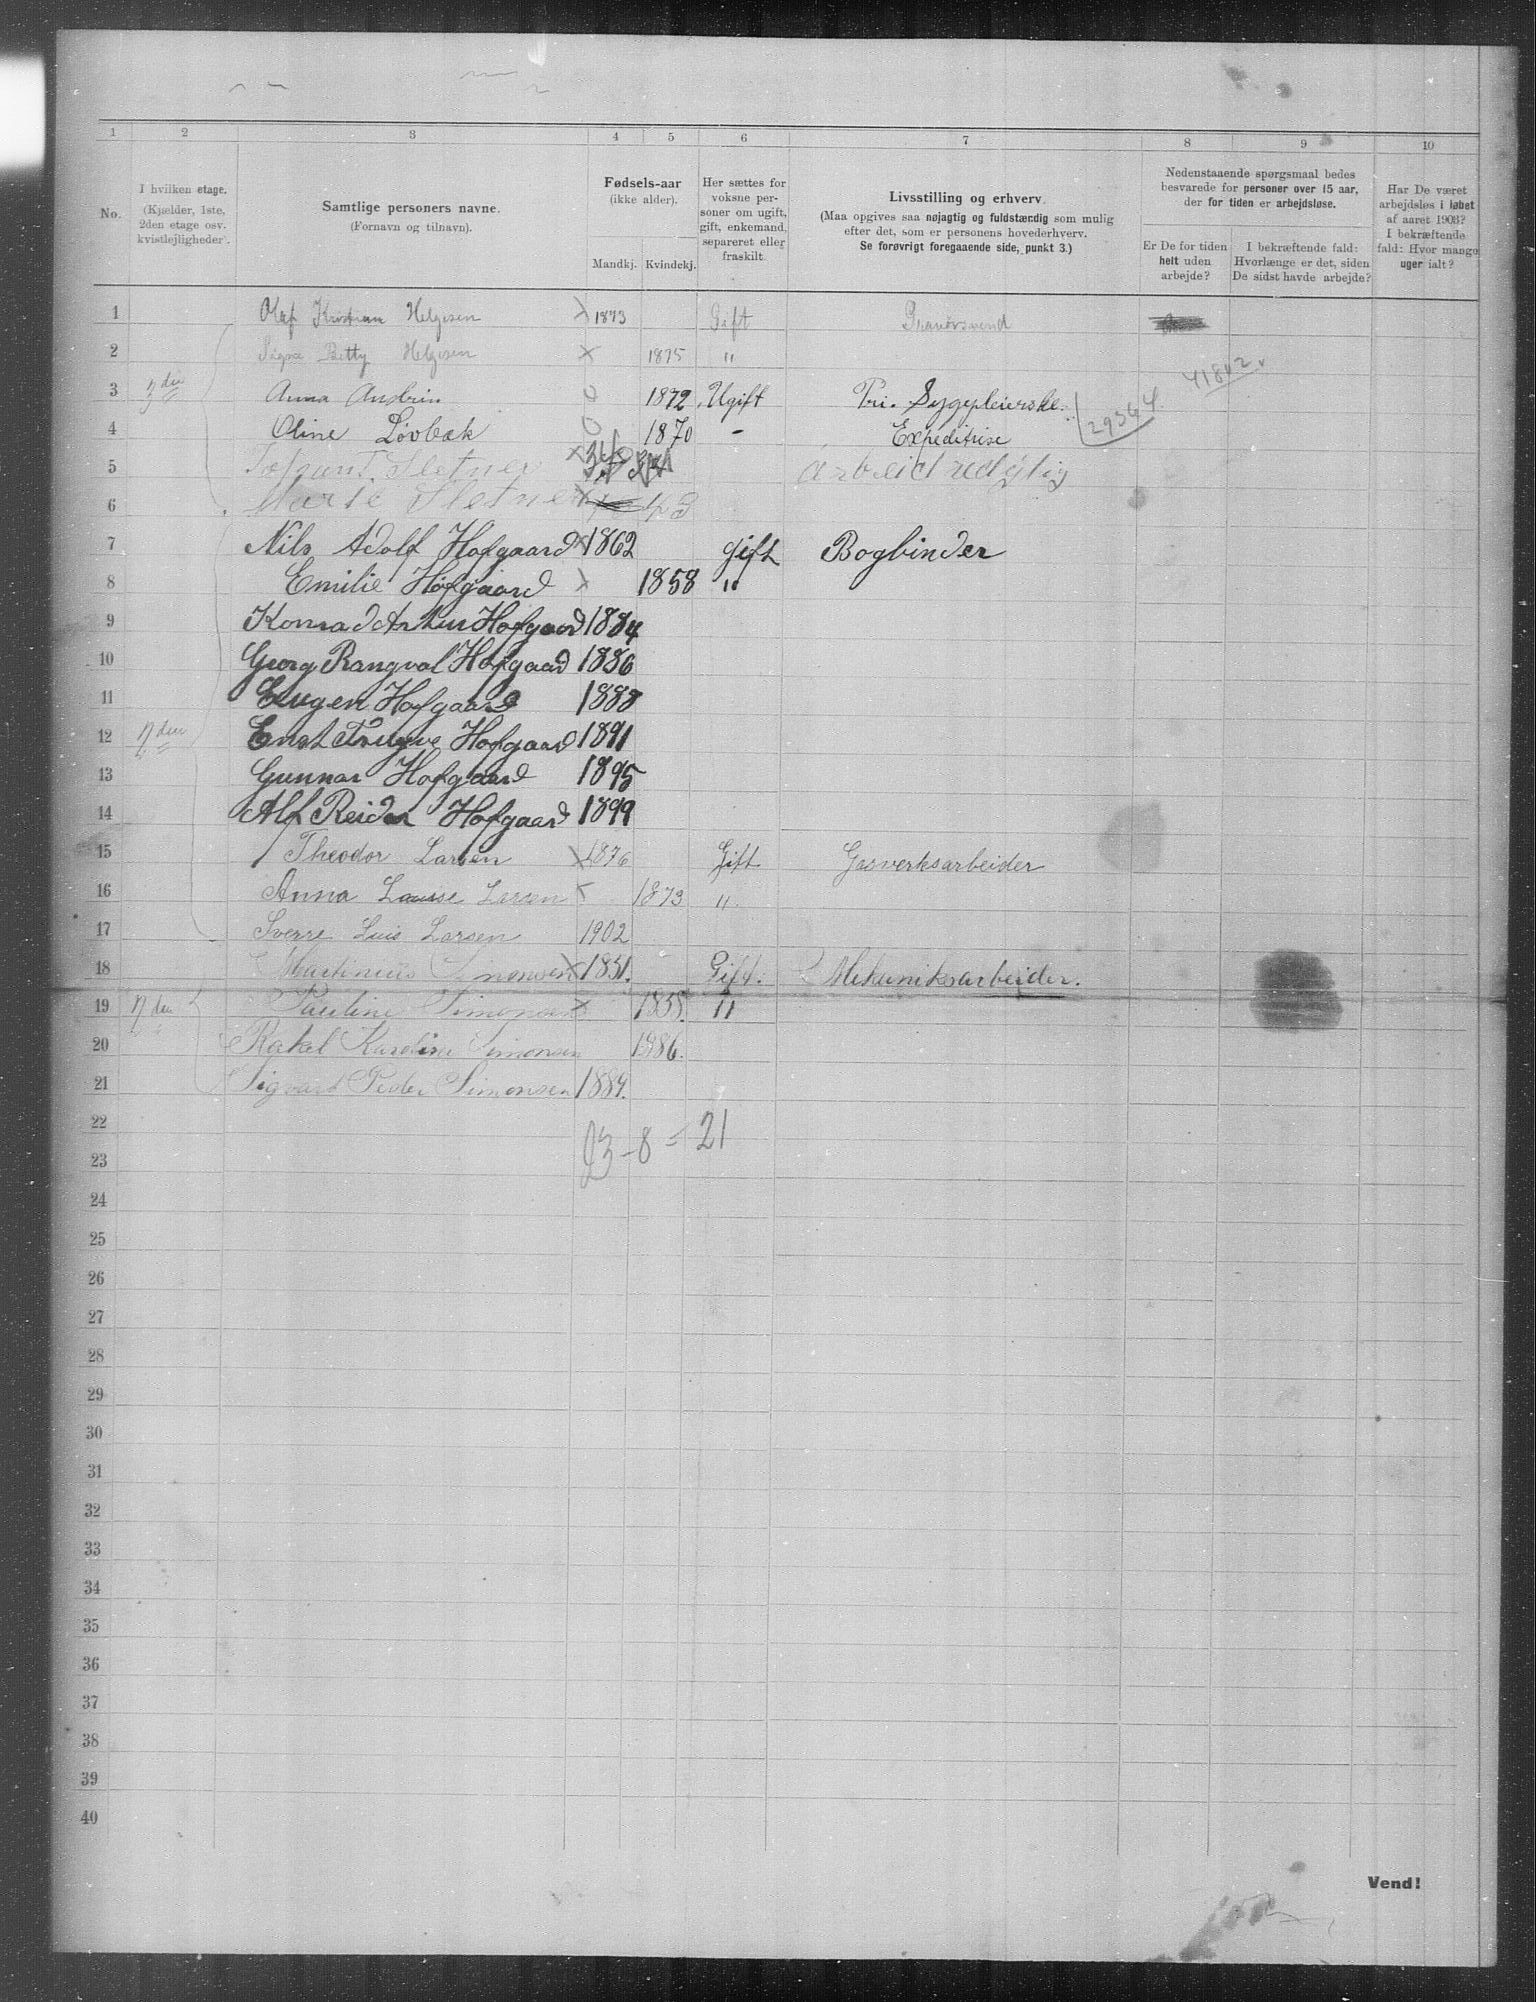 1 2 3 4 5 6 7 8 9 10
No.
I hvilken etage.
(Kjælder, 1ste,
2den etage osv.
kvistlejligheder).
Samtlige personers navne.
(Fornavn og tilnavn).
Fødsels-aar
(ikke alder).
Mandkj. Kvindekj.
Her sættes for
voksne per-
soner om ugift,
gift, enkemand,
separeret eller
fraskilt.
Livsstilling og erhverv.
(Maa opgives saa nøjagtig og fuldstændig som mulig
efter det, som er personens hovederhverv.
Se forøvrigt foregaaende side, punkt 3.)
Nedenstaaende spørgsmaal bedes
besvarede for personer over 15 aar,
der for tiden er arbejdsløse.
Er De for tiden
helt uden
arbejde?
I bekræftende fald:
Hvorlænge er det, siden
De sidst havde arbejde?
Har De været
arbejdsløs i løbet
af aaret 1903?
I bekræftende
fald: Hvor mange
uger ialt?
1 Olaf Kristian Helgesen X 1873 Gift
2 Signe Betty Helgesen X 1875 "
41812
3 3die Anna 0 1872 Ugift Pri. Sygepleierske. 29364
4 Oline Løvbæk 0 1870 - Expeditrise
5 Sletner X
6 Marie Sletner X 43
7 Nils Adolf Hofgaard X 1862 gift Bogbinder
8 Emilie Hofgaard X 1858 "
9 Konrad Artur Hofgaard 1884
10 Georg Rangval Hofgaard 1886
11 Eugen Hofgaard 1888
12 Enst Trugve Hofgaard 1891
13 Gunnar Hofgaard 1895
14 Alf Reidar Hofgaard 1899
15 Theodor Larsen X 1876 Gift Gasverksarbeider
16 Anna Larsen X 1873 "
17 Sverre Luis Larsen 1902
18 Martinius Simonsen X 1851. Gift. Mekaniksarbeider.
19 Pauline Simonsen X 1858. "
20 Rakel Karoline Simonsen 1886.
21 Sigvart Peder Simonsen 1889.
22
- 8 = 21
23
24
25
26
27
28
29
30
31
32
33
34
35
36
37
38
39
40
Vend!